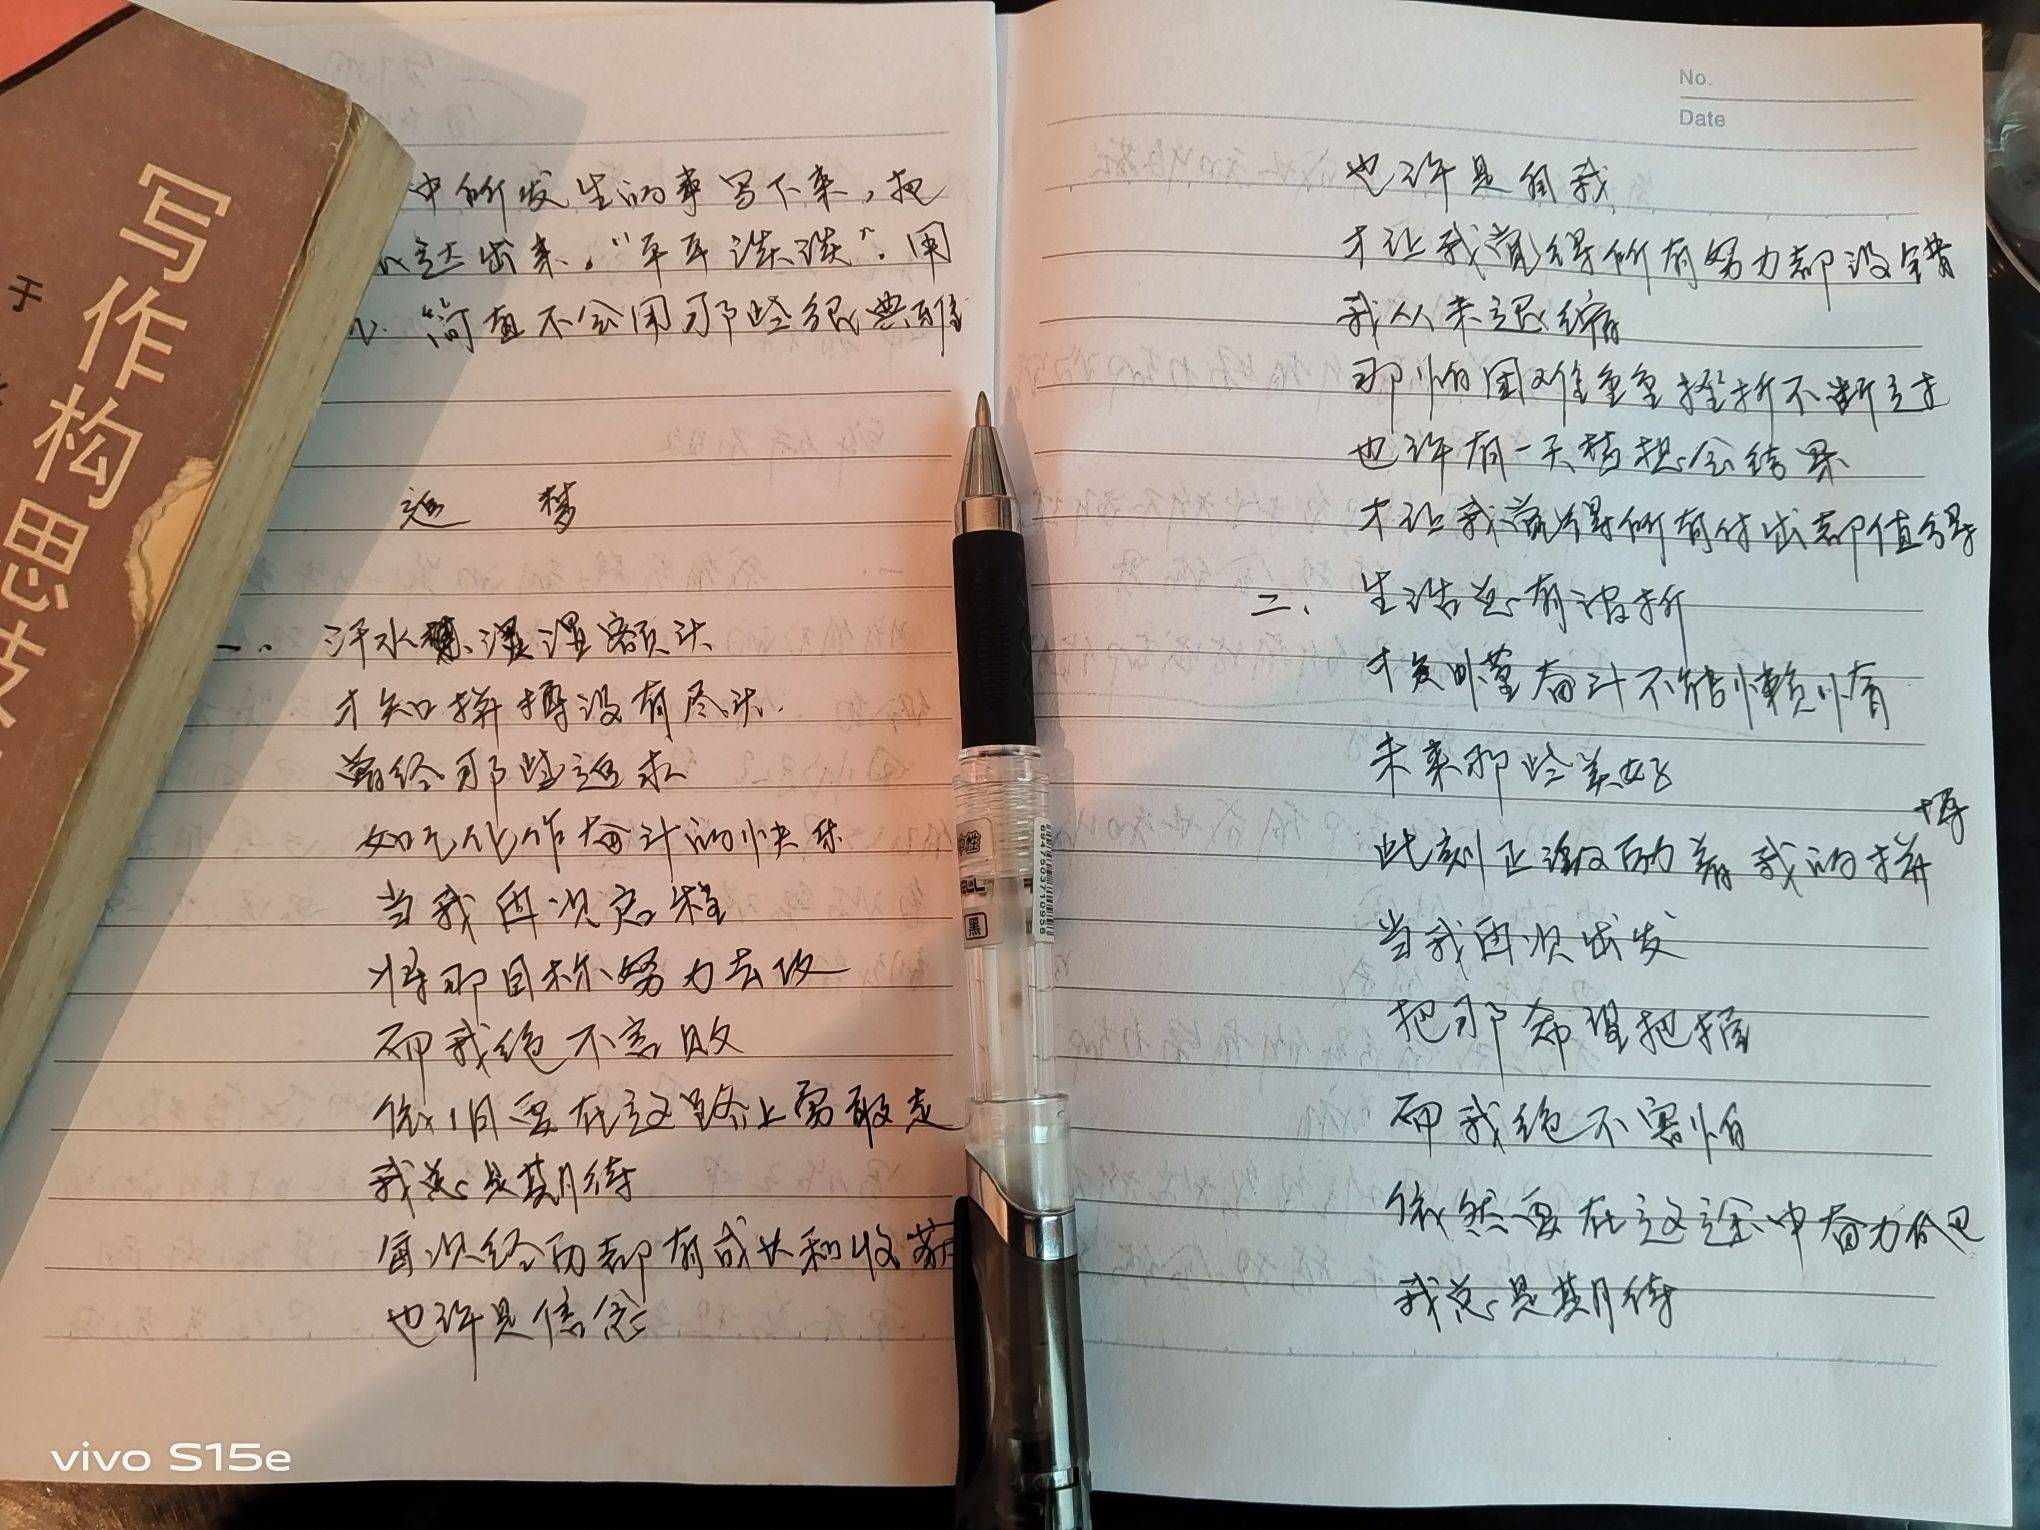 写作构思技
于
中所发生的事写下来，把
达出来。“平平淡淡”.用
简直不会用那些很典雅
追 梦
一. 汗水湿湿额头
才知拼搏没有尽头.
曾经那些追求
如今化作奋斗的快乐
当我再次启程
将那目标努力去攻
而我绝不言败
依旧要在这路上勇敢走
我总是期待
每次经历都有成长和收获
也许是信念
No.
Date
也许是自我
才让我觉得所有努力都没错
我从未退缩
那怕困难重重挫折不断过
也许有一天梦想会结果
才让我觉得所有付出都值得
二. 生活总有波折
才发现奋斗不能懒惰
未来那些美好
此刻正激励着我的拼搏
当我再次出发
把那希望把握
而我绝不害怕
依然要在这途中奋力
我总是期待
黑
6947503710956
vivo S15e